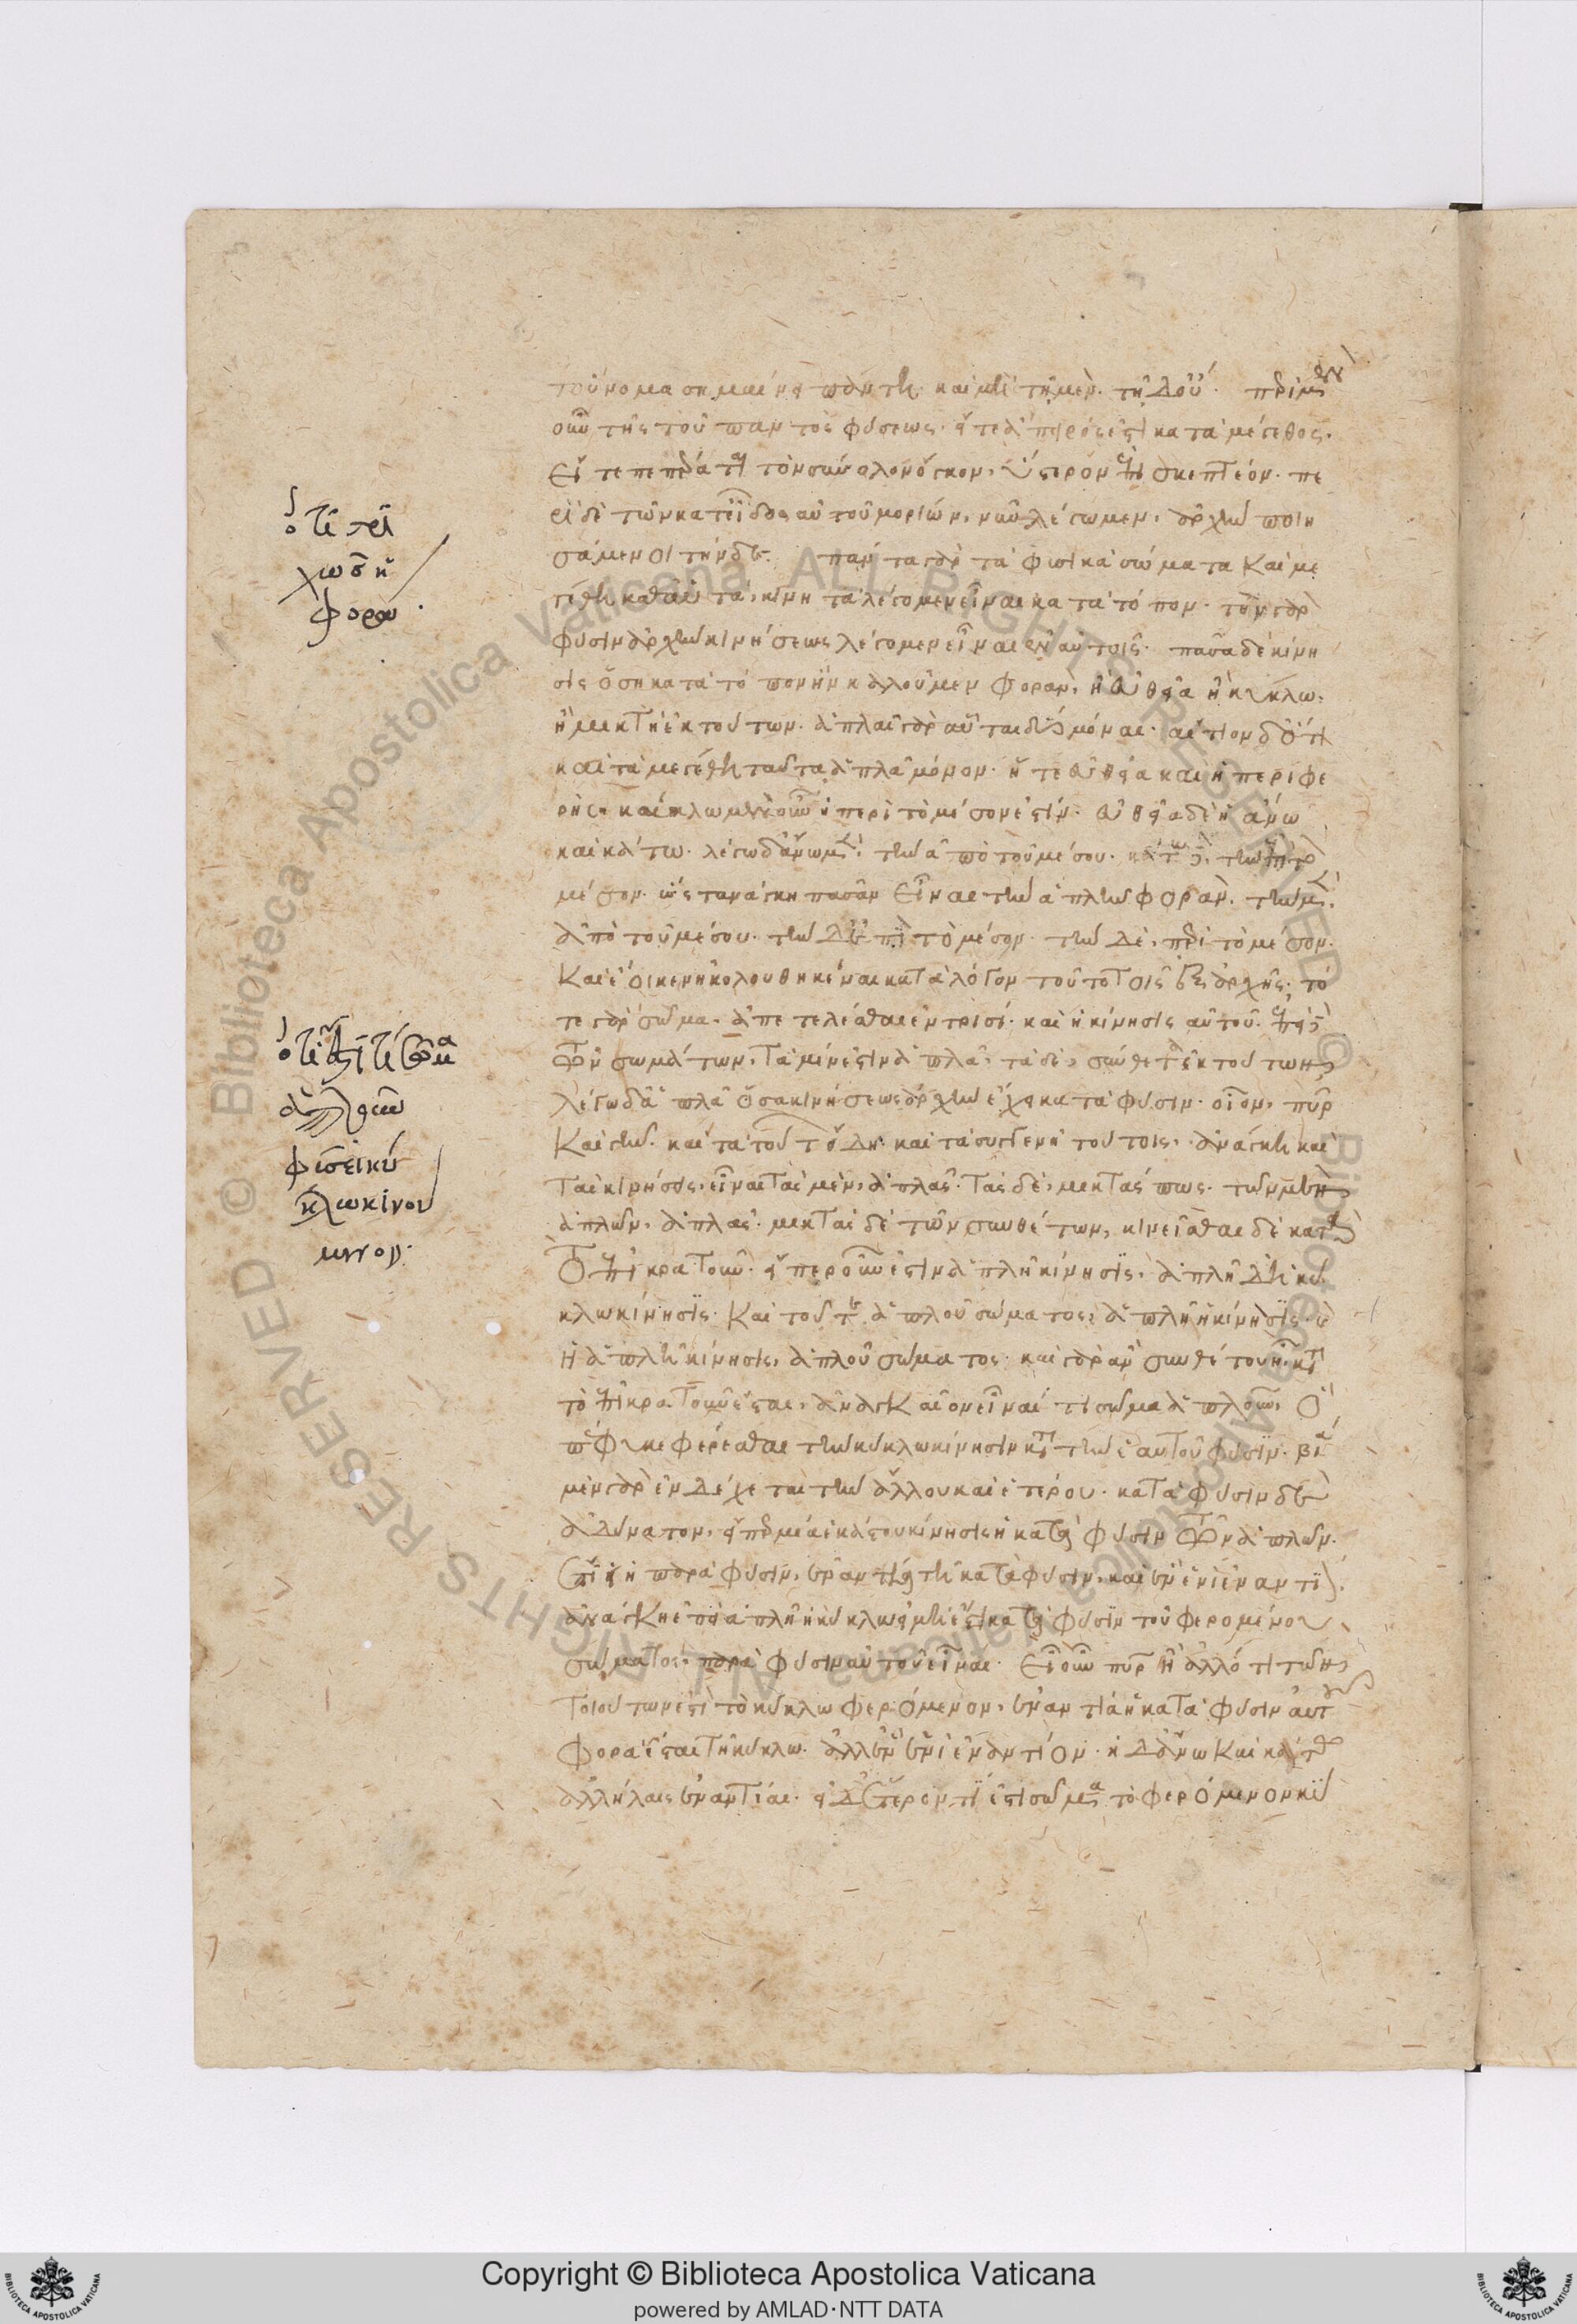 τοὔνομα σημαίνει πάντη. καὶ μὴ τῆ μὲν. τῆ δ' οὔ. περὶ μὲν
οὖν τῆς τοῦ παντὸς φύσεως. εἴτε ἄπειρός ἐστι κατὰ μέγεθος.
εἴτε πεπέρανται τὸν σύνολον ὄγκον, ὕστερον ἐπισκεπτέον. πε
ρὶ δὲ τῶν κατ' εἶδος αὐτοῦ μορίων, νῦν λέγωμεν, ἀρχὴν ποιη
σάμενοι τήνδε. πάντα γὰρ τὰ φυσικὰ σώματα καὶ με
γέθη καθ' αὑτὰ, κινητὰ λέγομεν εἶναι κατὰ τόπον. τὴν γὰρ
φύσιν ἀρχὴν κινήσεως λέγομεν εἶναι ἐν αὐτοῖς. πᾶσα δὲ κίνη
σις ὅση κατὰ τόπον ἣν καλοῦμεν φορὰν, ἢ εὐθεῖα ἢ κύκλω,
ἢ μικτὴ ἐκ τούτων. ἁπλαῖ γὰρ αὗται δύο μόναι. αἴτιον δ' ὅτι
καὶ τὰ μεγέθη ταῦτα ἁπλᾶ μόνον. ἥ τε εὐθεῖα καὶ ἡ περιφε
ρής. κύκλω μὲν οὖν ἡ περὶ τὸ μέσον ἐστίν. εὐθεῖα δὲ ἡ ἄνω
καὶ κάτω. λέγω δ' ἄνω μὲν, τὴν ἀπὸ τοῦ μέσου. κάτω δὲ, τὴν ἐπὶ τὸ
μέσον. ὥστ' ἀνάγκη πᾶσαν εἶναι τὴν ἁπλῆν φορὰν. τὴν μὲν,
ἀπὸ τοῦ μέσου. τὴν δ' ἐπὶ τὸ μέσον. τὴν δὲ, περὶ τὸ μέσον.
καὶ ἔοικεν ἠκολουθηκέναι κατὰ λόγον τοῦτο τοῖς ἐξ ἀρχῆς. τό
τε γὰρ σῶμα, ἀπετελέσθη ἐν τρισί. καὶ ἡ κίνησις αὐτοῦ. ἐπεὶ δὲ
τῶν σωμάτων, τὰ μέν ἐστιν ἁπλᾶ, τὰ δὲ, σύνθετα ἐκ τούτων
λέγω δ' ἁπλᾶ ὅσα κινήσεως ἀρχὴν ἔχει κατὰ φύσιν. οἷον, πῦρ
καὶ γῆν. καὶ τὰ τούτων εἴδη. καὶ τὰ συγγενῆ τούτοις. ἀνάγκη καὶ
τὰς κινήσεις, εἶναι τὰς μὲν, ἁπλᾶς. τὰς δὲ, μικτάς πως. τῶν μὲν
ἁπλῶν, ἁπλᾶς. μικτὰς δὲ τῶν συνθέτων, κινεῖσθαι δὲ κατὰ
τὸ ἐπικρατοῦν. εἴπερ οὖν ἐστὶν ἁπλῆ κίνησις. ἁπλῆ δ' ἡ κύ
κλω κίνησις. καὶ τοῦ τε ἁπλοῦ σώματος, ἁπλῆ ἡ κίνησις.
ἡ ἁπλῆ κίνησις, ἁπλοῦ σώματος. καὶ γὰρ ἂν συνθέτου ἦ. κατὰ
τὸ ἐπικρατοῦν ἔσται, ἀναγκαῖον εἶναί τι σῶμα ἁπλοῦν, ὃ
πέφυκε φέρεσθαι τὴν κύκλω κίνησιν κατὰ τὴν ἑαυτοῦ φύσιν. βία
μὲν γὰρ ἐνδέχεται τὴν ἄλλου καὶ ἑτέρου. κατὰ φύσιν δὲ
ἀδύνατον, εἴπερ μία ἑκάστου κίνησις ἡ κατὰ φύσιν τῶν ἁπλῶν.
ἔτι εἰ ἡ παρὰ φύσιν, ἐναντία τῆ κατὰ φύσιν, καὶ ἓν ἑνὶ ἐναντίον,
ἀνάγκη ἐπεὶ ἁπλῆ ἡ κύκλω εἰ μὴ ἔσται κατὰ φύσιν τοῦ φερομένου
σώματος, παρὰ φύσιν αὐτοῦ εἶναι. εἰ οὖν πῦρ ἢ ἄλλό τι τῶν
τοιούτων ἐστὶ τὸ κύκλω φερόμενον, ἐναντία ἡ κατὰ φύσιν αὐτοῦ
φορὰ ἔσται τῆ κύκλω. ἀλλ' ἓν ἑνὶ ἐναντίον. ἡ δ' ἄνω καὶ κάτω
ἀλλήλαις ἐναντίαι. εἰ δ' ἕτερόν τί ἐστι σῶμα τὸ φερόμενον κύ
ὅτι τρι
χῶς ἡ
φορά.
ὅτι ἔστι τι σῶμα
ἁπλοῦν
φύσει κύ
κλω κινού
μενον.
Biblioteca Apostolica Vaticana ALL RIGHTS RESERVED ©
Copyright © Biblioteca Apostolica Vaticana
powered by AMLAD·NTT DATA
BIBLIOTECA APOSTOLICA VATICANA
BIBLIOTECA APOSTOLICA VATICANA